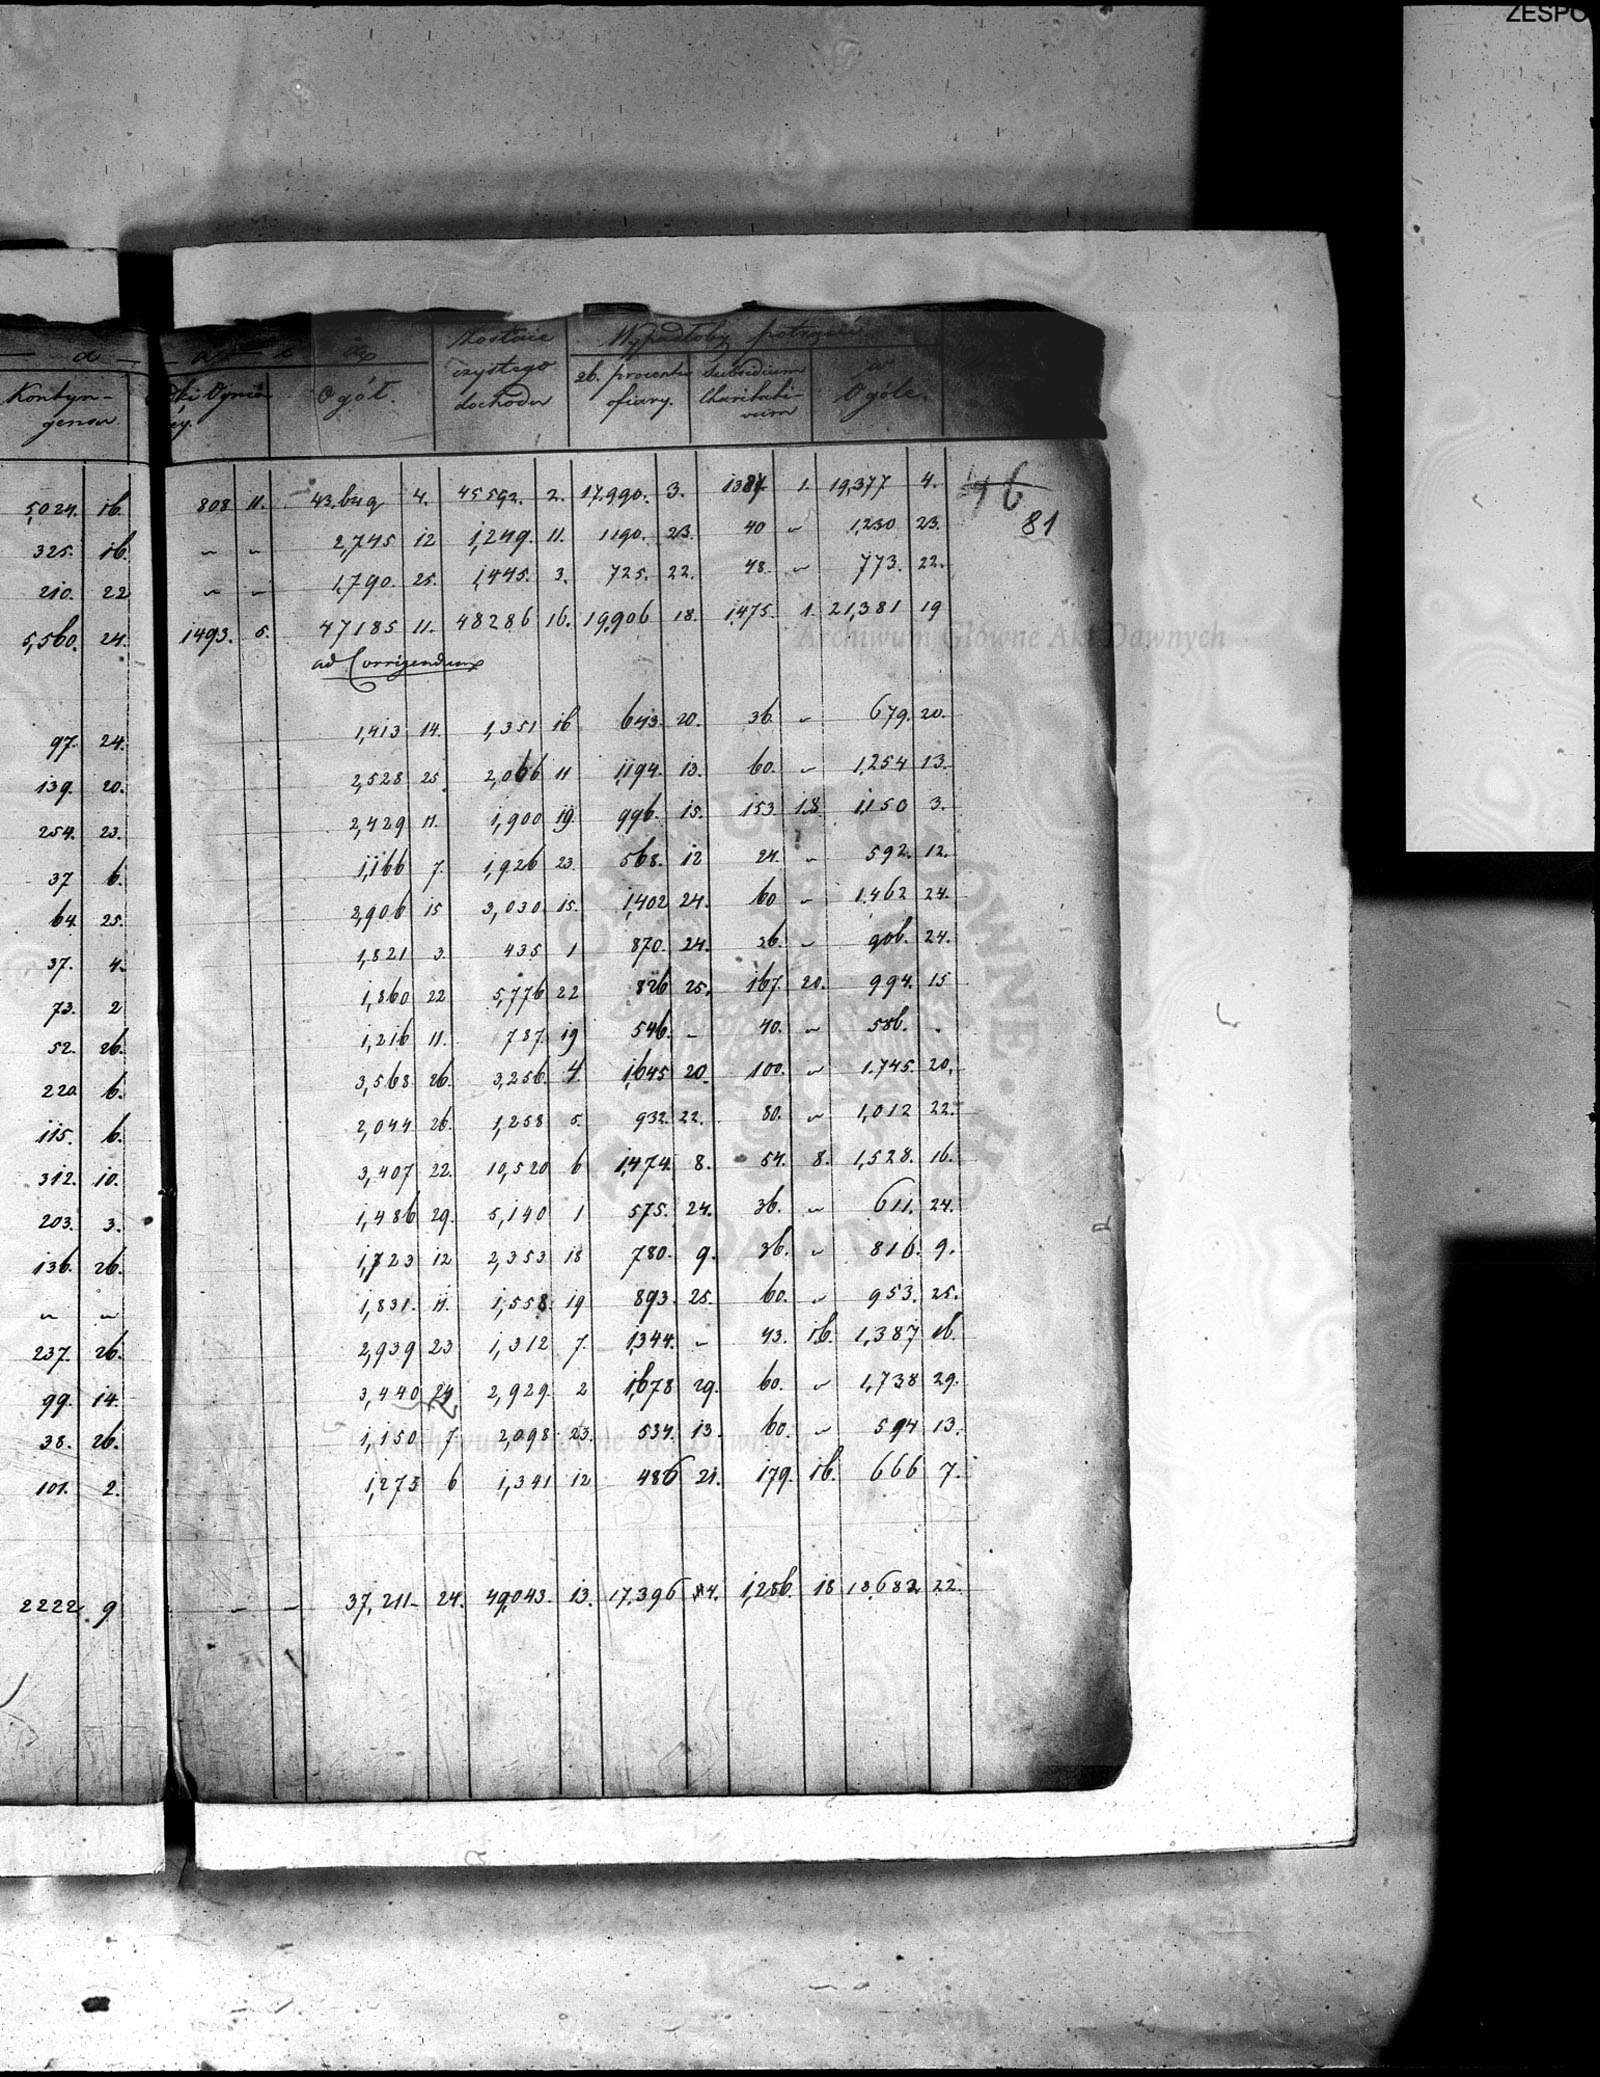 ZESPO
Kontyn-
gensu
Ogół.
Zostaie
czystego
dochodu
Wypadłoby potrącić
26. procentu
ofiary.
Subsidium
Charitati-
vum
w
Ogóle.
46
81
5,024. 16. 808 11. 4. 45592. 2. 17,990. 3. 1387. 1. 19,377 4.
325. 16. 2,745 12 1,249. 11. 1190. 23. 40 1,230 23.
210. 22 1,790. 25. 1,445. 3. 725. 22. 48. 773. 22.
5,560. 24. 1493. 5. 47185 11. 48286 16. 19,906 18. 1,475. 1. 21,381 19
ad Corrigendum
97. 24. 1,413 14. 1,351 16 643. 20. 36 679. 20.
139. 20. 2,528 25. 2,066 11 1,194. 13. 60. 1,254 13.
254. 23. 2,429 11. 1,900 19. 996. 15. 153. 18. 1,150 3.
37 6. 1,166 7. 1,926 23. 568. 12 24. 592. 12.
64. 25. 2,906 15 3,030 15. 1,402 24. 60 1,462 24.
37. 4. 1,821 3. 435 1 870. 24. 36. 906. 24.
73. 2 1,860 22 5,776 22 826 25. 167. 20. 994. 15
52. 26. 1,216 11. 787 19 546. - 40. 586. -
220. 6. 3,568 26. 3,256. 4. 1,645 20. 100. 1,745. 20.
115. 6. 2,044 26. 1,258 5. 932. 22. 80. 1,012 22.
312. 10. 3,407 22. 10,520 6 1,474. 8. 54. 8. 1,528. 16.
203. 3. 1,486 29. 5,140 1 575. 24. 36. 611. 24.
136. 26. 1,723 12 2,353 18 780. 9. 36. 816. 9.
1,831. 11. 1,558. 19 893. 25. 60. 953. 25.
237. 26. 2,939 23 1,312 7. 1,344. - 43. 16. 1,387 16.
99. 14. 3,440 2,929. 2 1,678 29. 60. 1,738 29.
38. 26. 1,150 7 2,098 23. 534. 13. 60. 594 13.
101. 2. 1,273 6 1,341 12 486 21. 179. 16. 666 7.
2222. 9 - - 37,211- 24. 49,043. 13. 17,396 4. 1,286. 18 18,682 22.
Archiwum Główne Akt Dawnych
Archiwum Główne Akt Dawnych